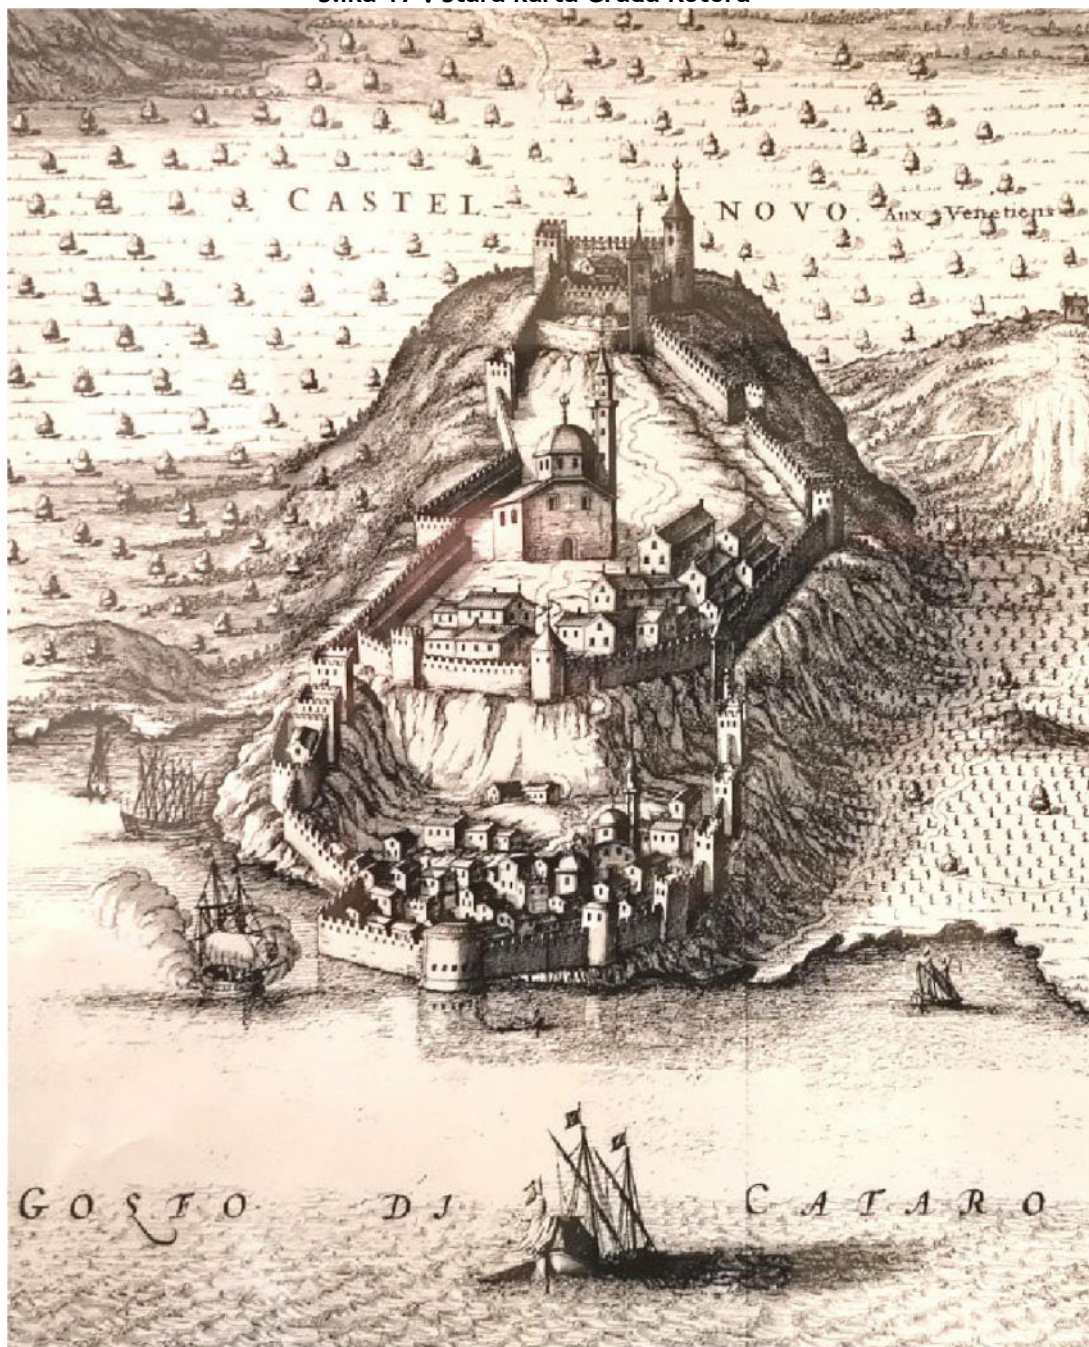 Slika : Stara karta Grada Kotora
CASTEL- NOVO. Aux Venetiens
GOSFO DI CATARO